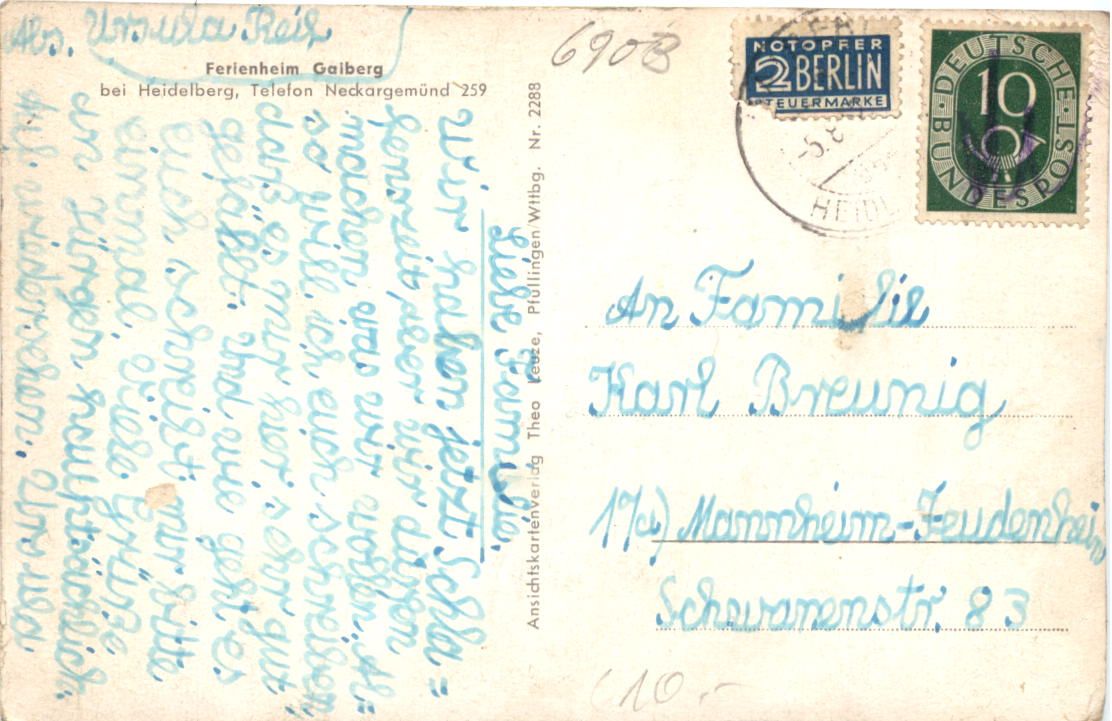 Abs. Ursula Reiß
Ferienheim Gaiberg
bei Heidelberg, Telefon Neckargemünd 259
Liebe Familie.
Wir haben jetzt Schla=
fenszeit, aber wir dürfen
machen was wir wollen. Al=
so will ich euch schreiben,
daß es mir hier sehr gut
gefällt. Und wie geht es
euch, schreibt mir bitte
einmal. Viele Grüße
an Jürgen hauptsächlich.
Auf wiedersehen. Ursula
Ansichtskartenverlag Theo Leuze, Pfullingen/Wttbg. Nr. 2288
690B
NOTOPFER
2 BERLIN
STEUERMARKE
DEUTSCHE
BUNDESPOST
10
-5.8
HEIDEL
An Familie
Karl Breunig
Mannheim-Feudenheim
Schwanenstr. 83
10.-